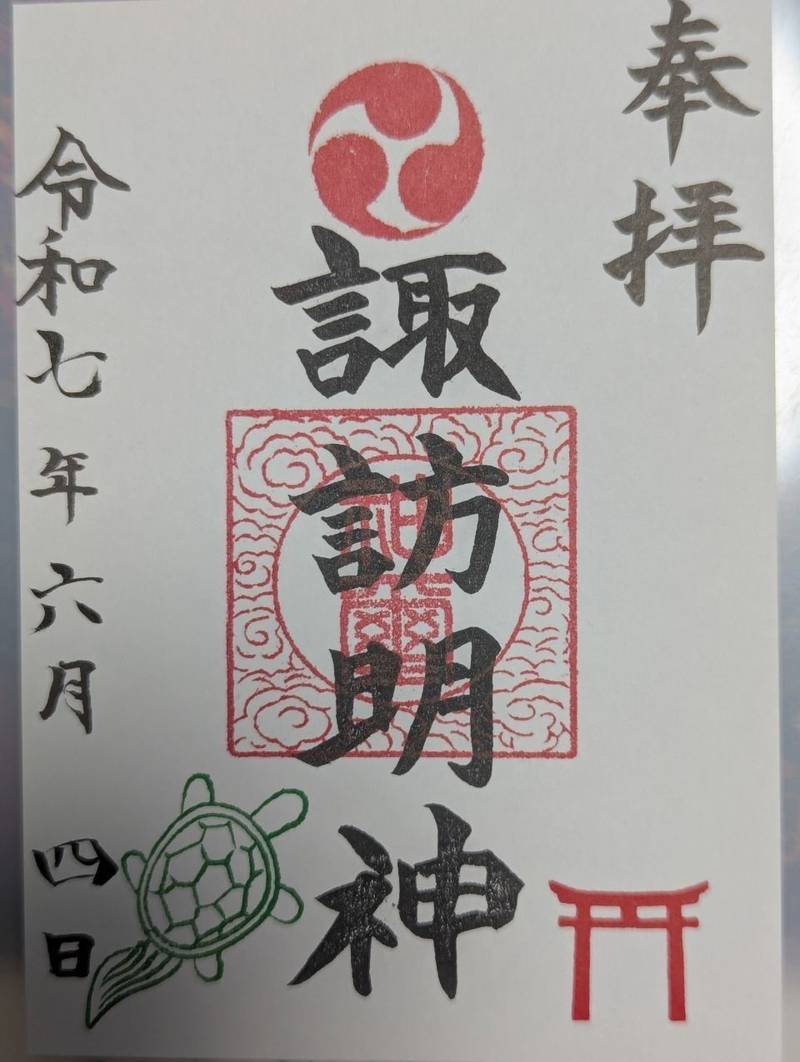 奉拝
諏訪明神
令和七年六月四日